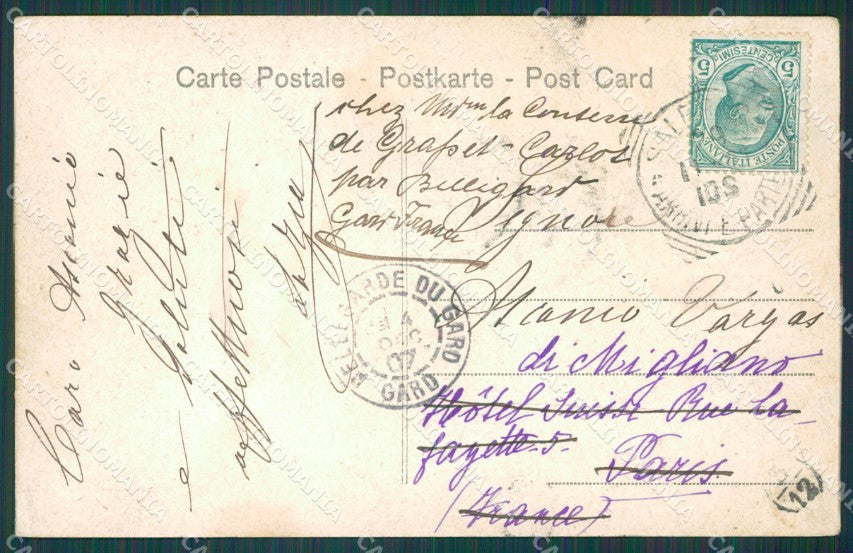 Carte Postale - Postkarte - Post Card
Caro Ascanio
Grazie
e saluti
affettuosi
chez Mme la Comtesse
de Grafset-Carlos
par Bellegarde
Gard France
Signore
Ascanio Vargas
di Migliano
Hôtel Suisse Rue La-
fayette. 5.
Paris
(France)
CENTESIMI
5 5
POSTE ITALIANE
ARRIVI E PARTENZE
BELLEGARDE DU GARD
GARD
07
12
CARTOLINOMANIA